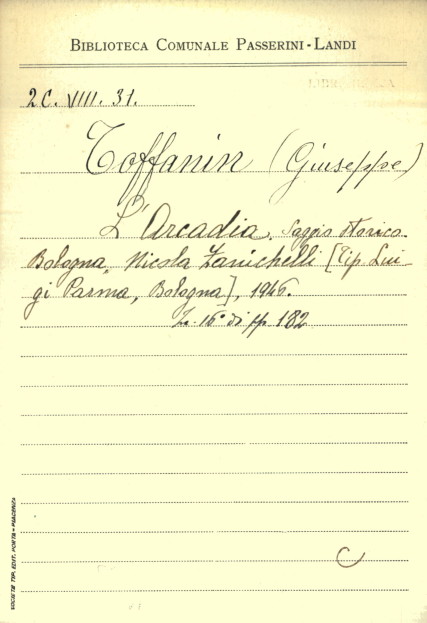 BIBLIOTECA COMUNALE PASSERINI-LANDI
2C. VIII. 31.
Toffanin (Giuseppe)
L'Arcadia. Saggio storico.
Bologna, Nicola Zanichelli [Tip. Lui-
gi Parma, Bologna], 1946.
In 16° di pp 182
C
SOCIETÀ TIP. EDIT. PORTA - PIACENZA